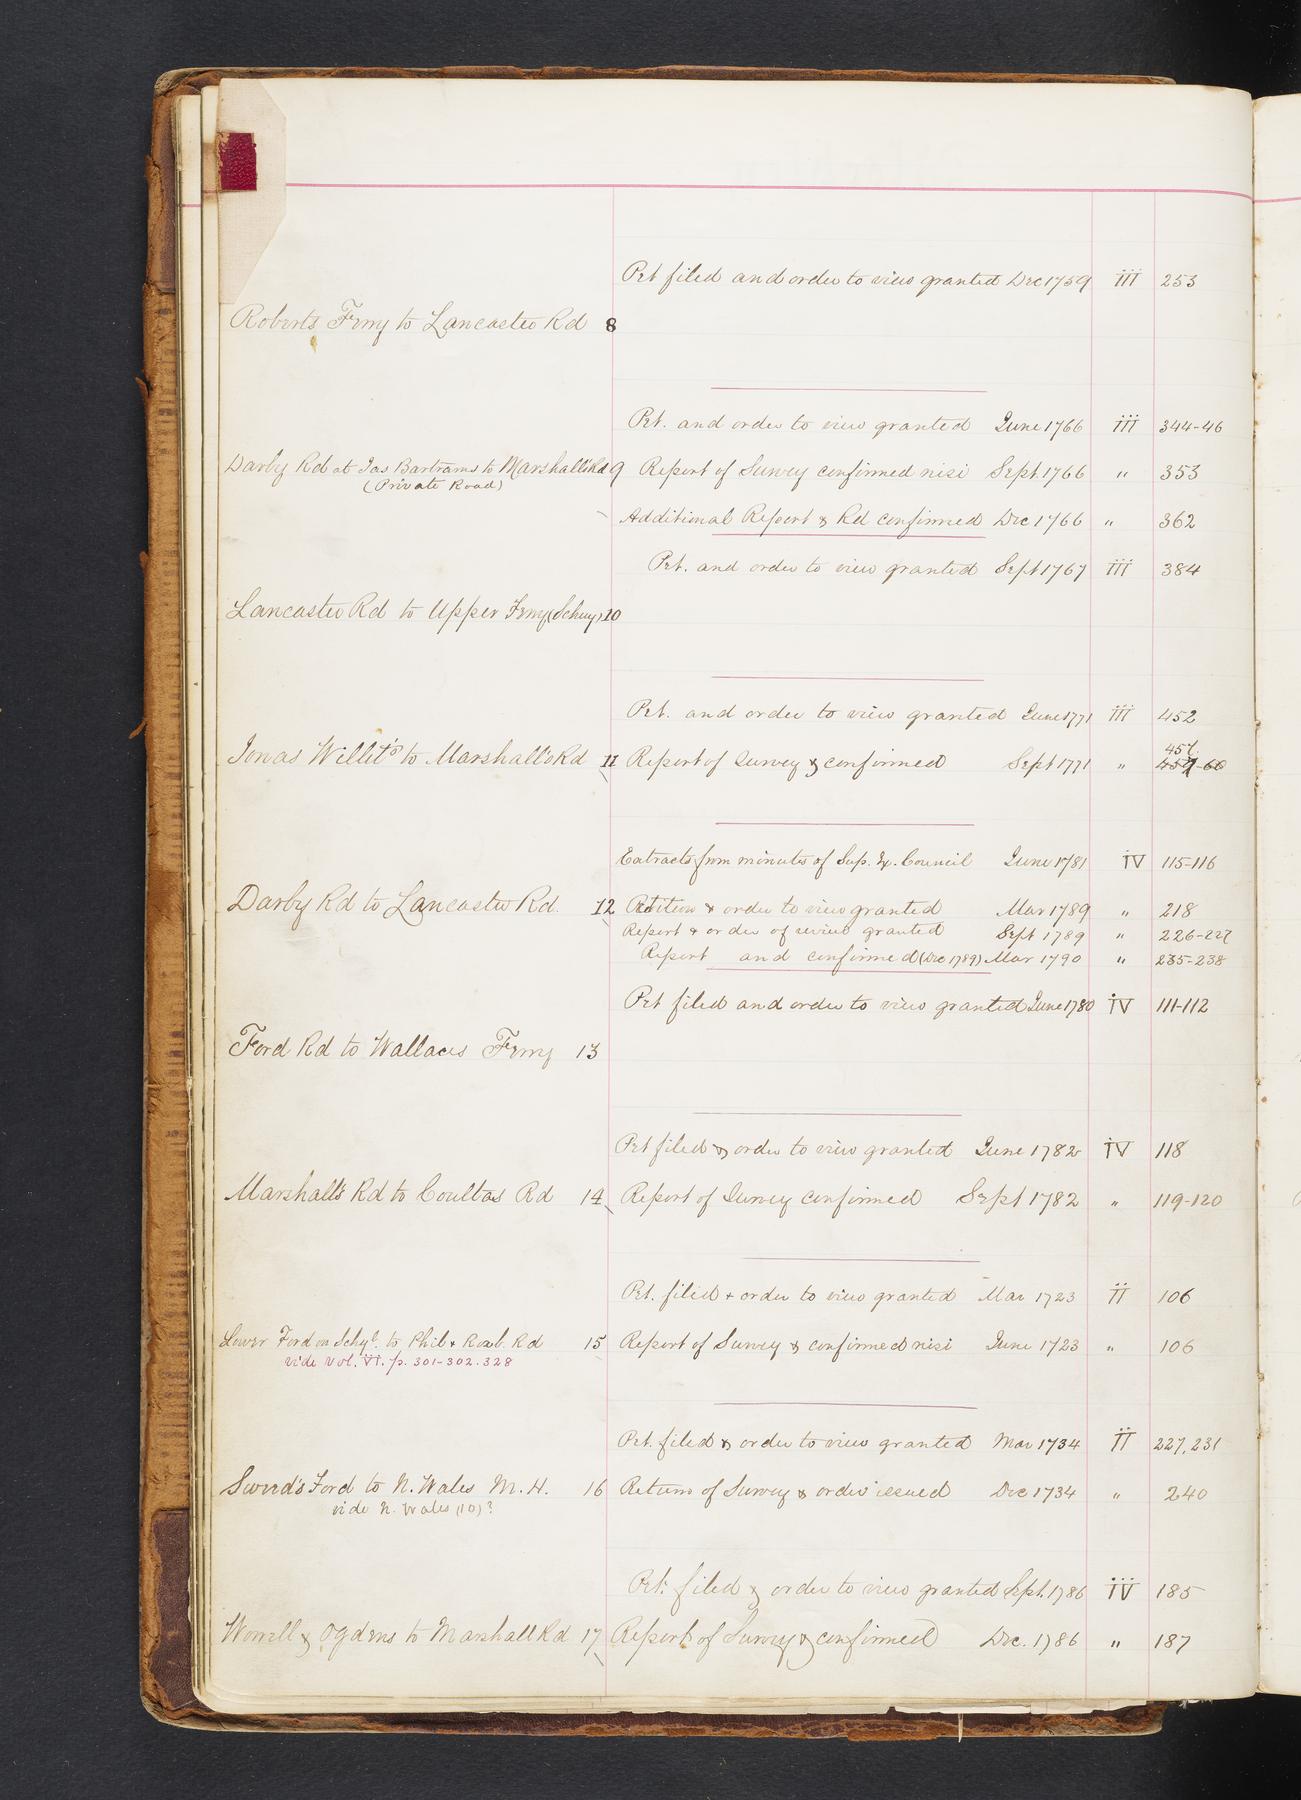 Pet filed and order to view granted Dec 1759 iii 253
Roberts Ferry to Lancaster Rd 8
Pet. and order to view granted June 1766 iii 344-46
Darby Rd at Jas Bartrams to Marshall's Rd 9 Report of Survey confirmed nisi Sept. 1766 " 353
(Private Road)
Additional Report & Rd confirmed Dec 1766 " 362
Pet. and order to view granted Sept 1767 iii 384
Lancaster Rd to Upper Ferry (Schuy) 10
Pet. and order to view granted June 1771 iii 452
Jonas Willit's to Marshall's Rd 11 Report of Survey & confirmed Sept 1771 " 457
Extracts from minutes of Sup. Ex. Council June 1781 iv 115-116
Darby Rd to Lancaster Rd. 12 Petition & order to view granted Mar 1789 " 218
Report & order of review granted Sept 1789 " 226-227
Report and confirmed (Dec 1789) Mar 1790 " 235-238
Pet filed and order to view granted June 1780 iv 111-112
Ford Rd to Wallaces Ferry 13
Pet filed & order to view granted June 1782 iv 118
Marshall's Rd to Coultas Rd 14 Report of Survey confirmed Sept 1782 " 119-120
Pet. filed + order to view granted Mar 1723 ii 106
Lower Ford on Schyl. to Phil + Roxb. Rd 15 Report of Survey & confirmed nisi June 1723 " 106
vide Vol. VI. p. 301-302.328
Pet. filed & order to view granted Mar 1734 ii 227, 231
Swerd's Ford to N. Wales M. H. 16 Return of Survey & order issued Dec 1734 " 240
vide N. Wales (10)?
Pet. filed & order to view granted Sept. 1786 iv 185
Worrell & Ogdens to Marshall Rd 17 Report of Survey & confirmed Dec. 1786 " 187